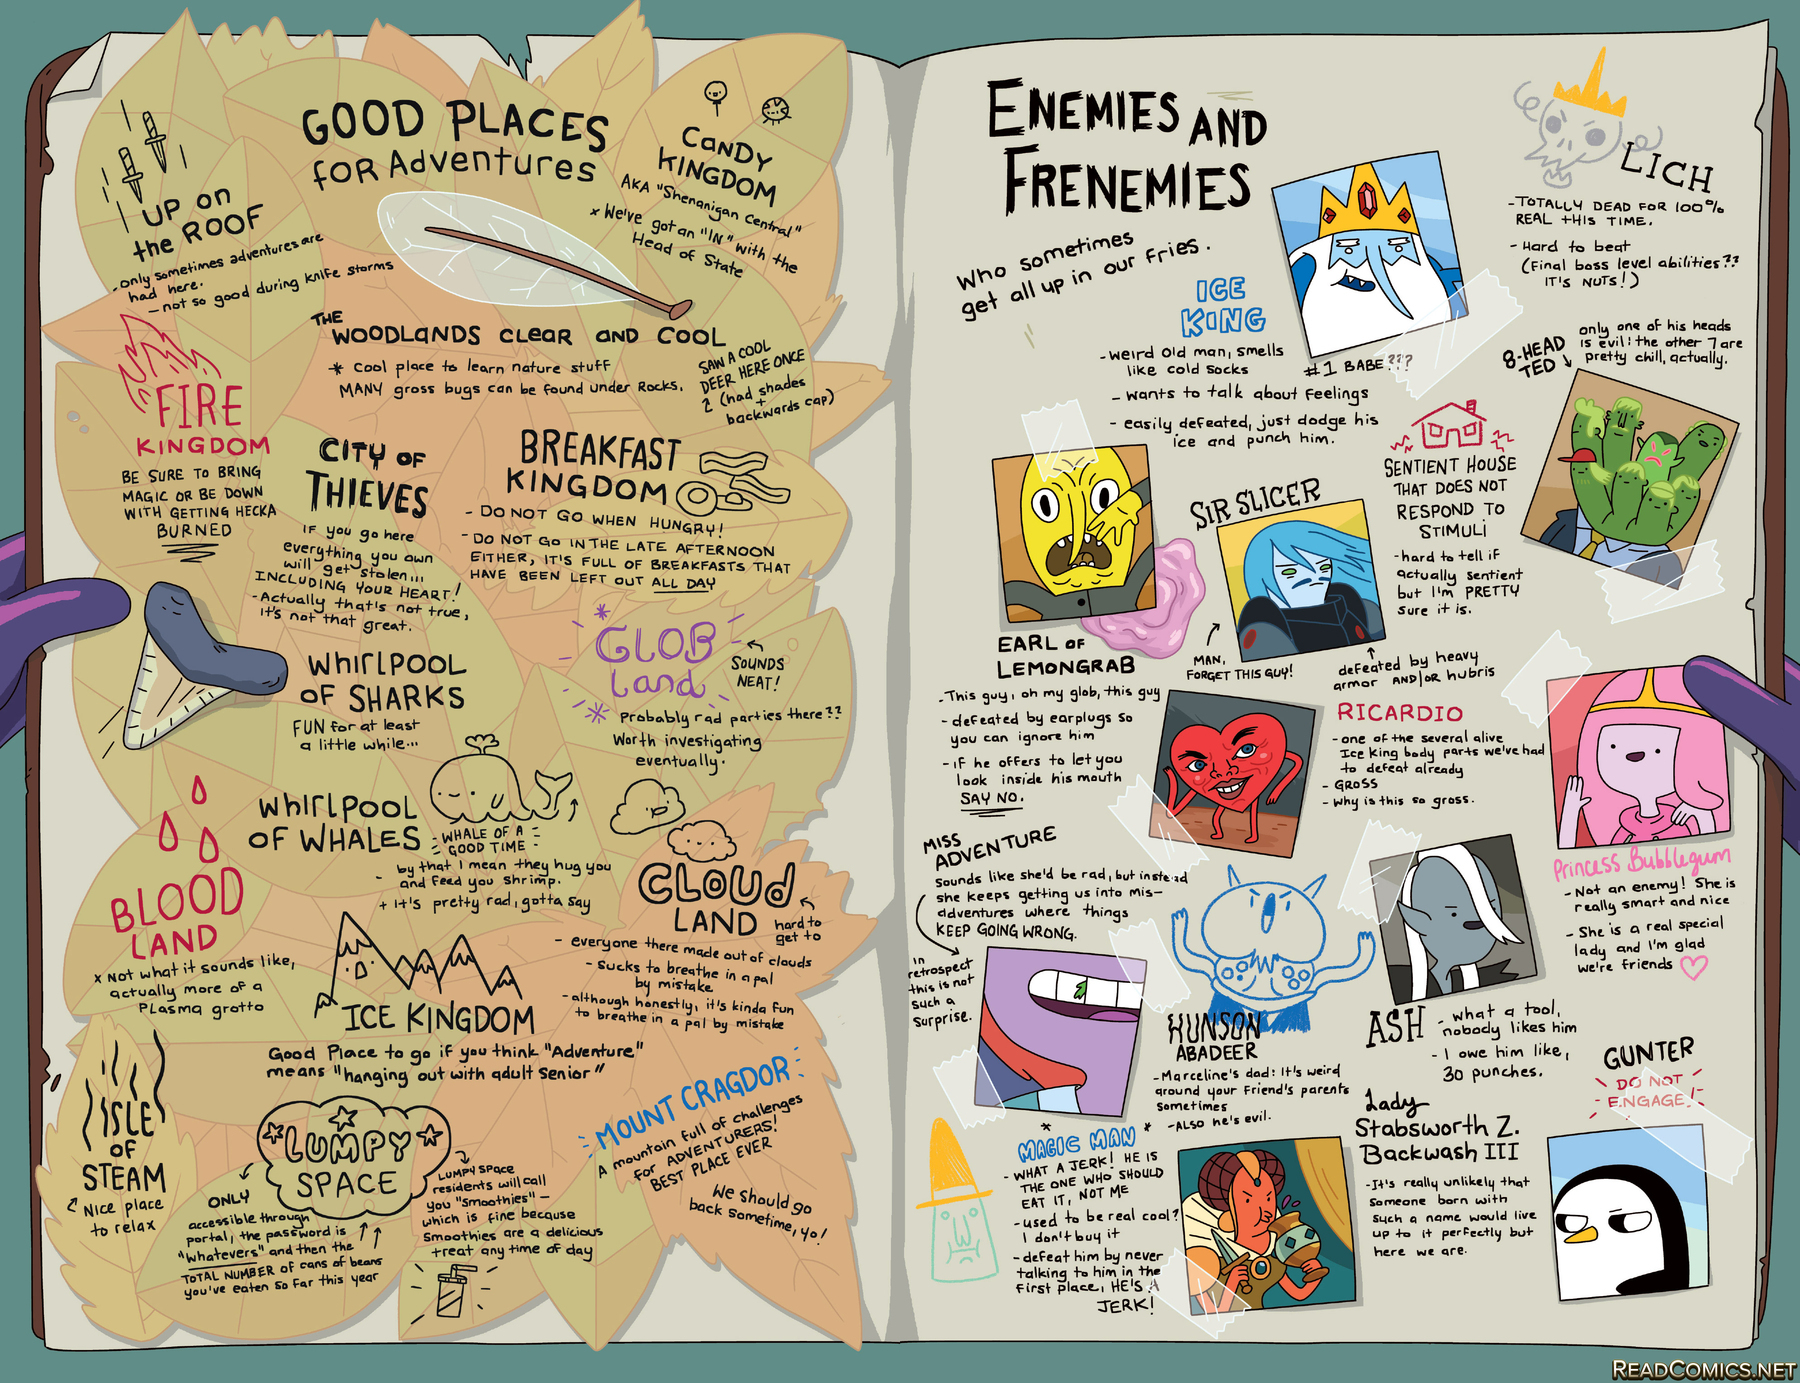 GOOD PLACES
FOR Adventures
UP on
the ROOF
-only sometimes adventures are
had here.
- not so good during knife storms
CANDY
KINGDOM
AKA "Shenanigan Central"
x We've got an "IN" with the
Head of State
THE
WOODLANDS CLEAR AND COOL
* Cool place to learn nature stuff
MANY gross bugs can be found under Rocks.
SAW A COOL
DEER HERE ONCE
(had shades
+
backwards cap)
FIRE
KINGDOM
BE SURE TO BRING
MAGIC OR BE DOWN
WITH GETTING HECKA
BURNED
CITY OF
THIEVES
IF you go here
everything you own
will get stolen...
INCLUDING YOUR HEART!
-Actually that's not true,
it's not that great.
BREAKFAST
KINGDOM
- DO NOT GO WHEN HUNGRY!
- DO NOT GO IN THE LATE AFTERNOON
EITHER, IT'S FULL OF BREAKFASTS THAT
HAVE BEEN LEFT OUT ALL DAY
GLOB
Land
SOUNDS
NEAT!
Probably rad parties there??
Worth investigating
eventually.
WHIRLPOOL
OF SHARKS
FUN for at least
a little while...
WHIRLPOOL
OF WHALES
- WHALE OF A -
- GOOD TIME -
- by that I mean they hug you
and feed you shrimp.
+ it's pretty rad, gotta say
BLOOD
LAND
x Not what it sounds like,
actually more of a
Plasma grotto
CLOUD
LAND
hard to
get to
- everyone there made out of clouds
- sucks to breathe in a pal
by mistake
-although honestly, it's kinda fun
to breathe in a pal by mistake
ICE KINGDOM
Good Place to go if you think "Adventure"
means "hanging out with adult senior"
ISLE
OF
STEAM
Nice place
to relax
LUMPY
SPACE
ONLY
accessible through
portal, the password is
"whatevers" and then the
TOTAL NUMBER of cans of beans
you've eaten so far this year
LUMPY SPACE
residents will call
you "Smoothies" -
which is fine because
Smoothies are a delicious
treat any time of day
MOUNT CRAGDOR
A mountain full of challenges
for ADVENTURERS!
BEST PLACE EVER
We should go
back sometime, yo!
ENEMIES AND
FRENEMIES
Who sometimes
get all up in our fries.
ICE
KING
-weird old man, smells
like cold socks
- wants to talk about feelings
- easily defeated, just dodge his
ice and punch him.
#1 BABE???
LICH
-TOTALLY DEAD FOR 100%
REAL THIS TIME.
- Hard to beat
(Final boss level abilities??
IT'S NUTS!)
8-HEAD
TED
only one of his heads
is evil! the other 7 are
pretty chill, actually.
SENTIENT HOUSE
THAT DOES NOT
RESPOND TO
STIMULI
-hard to tell if
actually sentient
but I'm PRETTY
sure it is.
EARL OF
LEMONGRAB
-This guy, oh my glob, this guy
- defeated by earplugs so
you can ignore him
- if he offers to let you
look inside his mouth
SAY NO.
SIR SLICER
MAN,
FORGET THIS GUY!
defeated by heavy
armor AND/OR hubris
RICARDIO
- one of the several alive
Ice King body parts we've had
to defeat already
- GROSS
- Why is this so gross.
Princess Bubblegum
- Not an enemy! She is
really smart and nice
- She is a real special
lady and I'm glad
we're friends
MISS
ADVENTURE
Sounds like she'd be rad, but instead
she keeps getting us into mis-
adventures where things
KEEP GOING WRONG.
in
retrospect
this is not
such a
surprise.
HUNSON
ABADEER
-Marceline's dad: It's weird
around your friend's parents
sometimes
-ALSO he's evil.
ASH
- what a tool,
nobody likes him
- I owe him like,
30 punches.
GUNTER
DO NOT
ENGAGE!
* MAGIC MAN *
- WHAT A JERK! HE IS
THE ONE WHO SHOULD
EAT IT, NOT ME
-used to be real cool?
I don't buy it
-defeat him by never
talking to him in the
first place, HE'S A
JERK!
Lady
Stabsworth Z.
Backwash III
-It's really unlikely that
someone born with
such a name would live
up to it perfectly but
here we are.
READCOMICS.NET